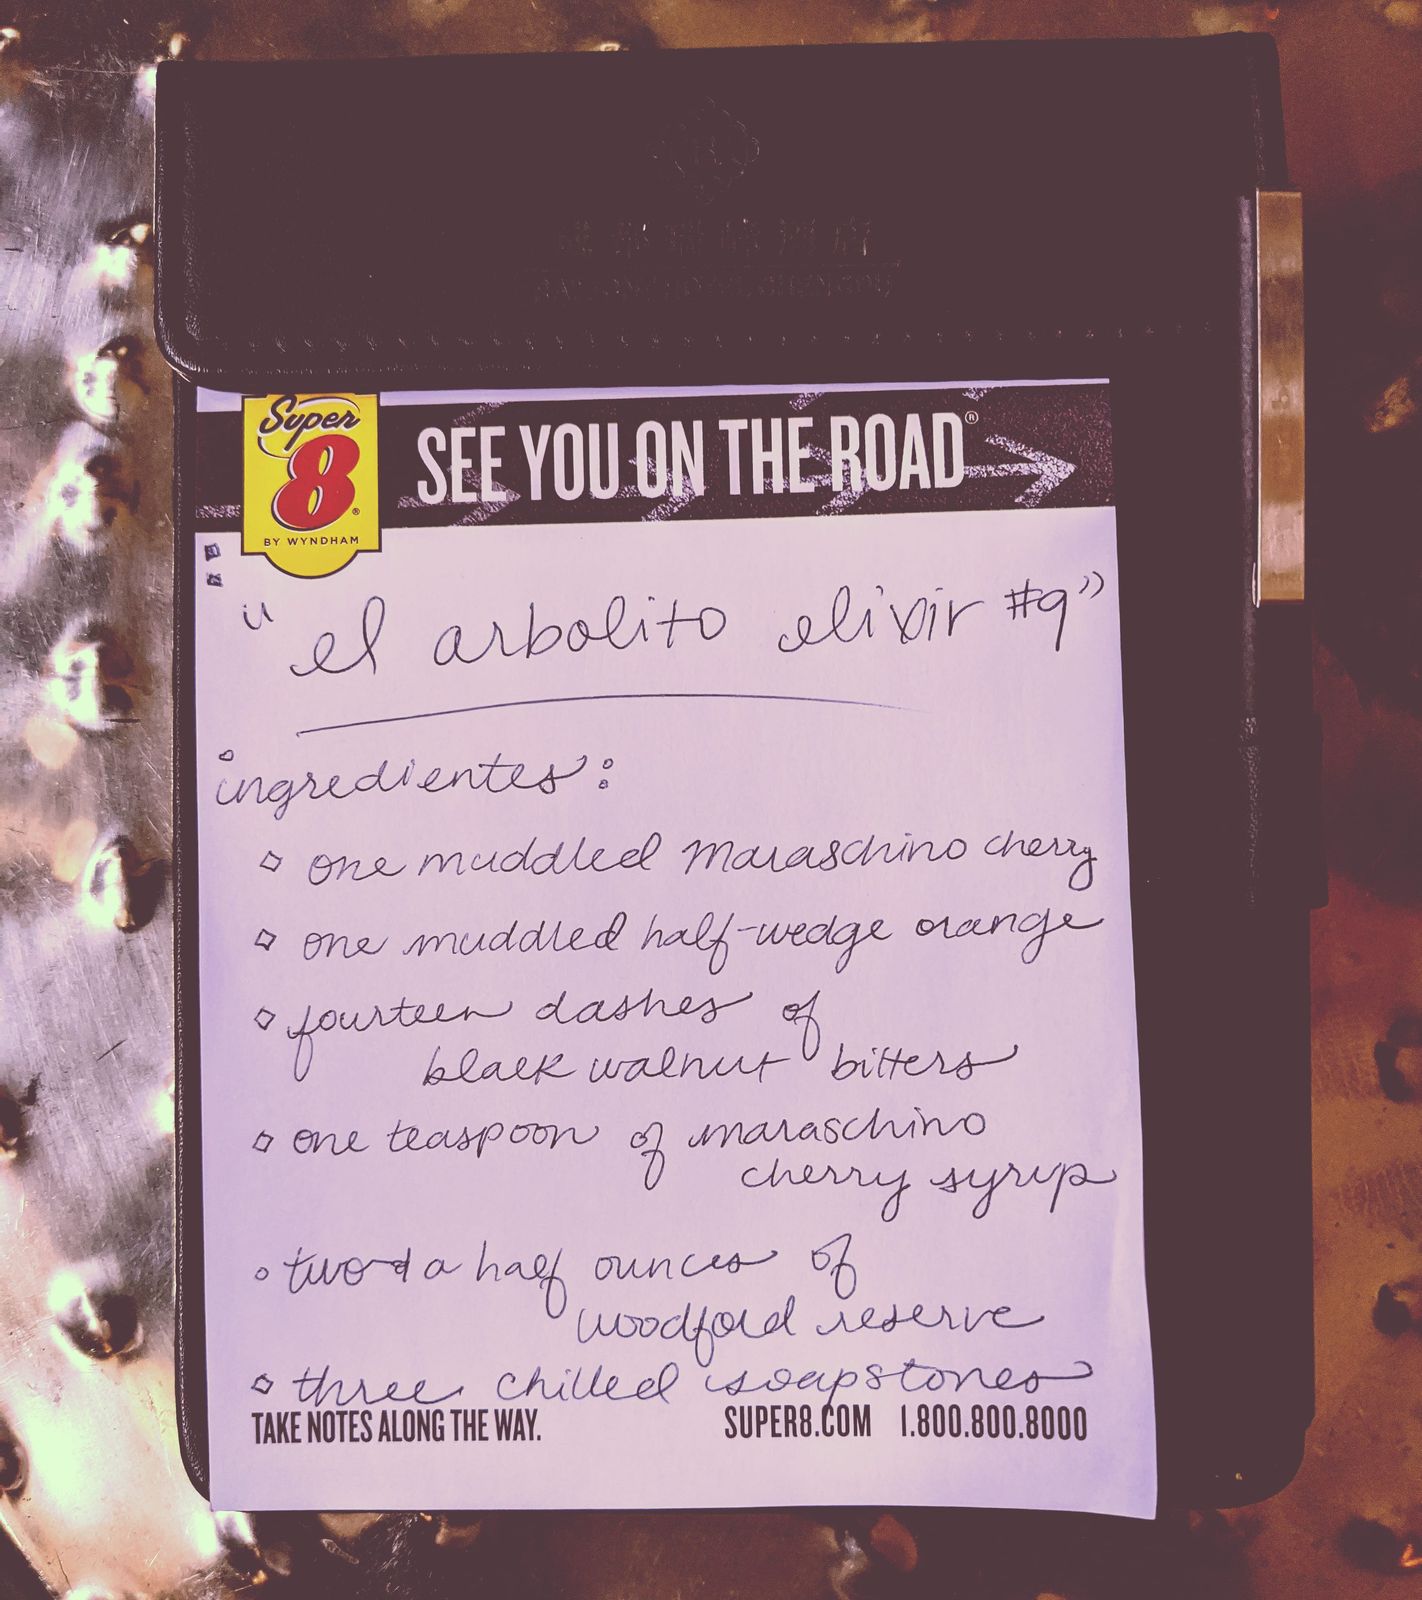 Super
8®
BY WYNDHAM
SEE YOU ON THE ROAD®
"el arbolito elixir #9"
ingredientes:
◇ one muddled maraschino cherry
◇ one muddled half-wedge orange
◇ fourteen dashes of
black walnut bitters
◇ one teaspoon of maraschino
cherry syrup
◦ two & a half ounces of
woodford reserve
◇ three chilled soapstones
TAKE NOTES ALONG THE WAY.
SUPER8.COM 1.800.800.8000